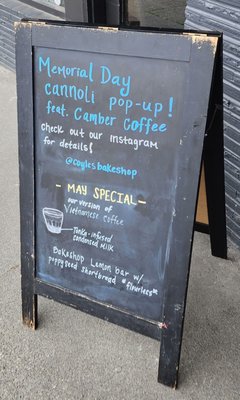 Memorial Day
cannoli pop-up!
feat. Camber Coffee
Check out our Instagram
for details!
@coylesbakeshop
- MAY SPECIAL -
our version of
Vietnamese Coffee
Tonka-infused
condensed milk
Bakeshop Lemon bar w/
poppyseed shortbread *flourless*